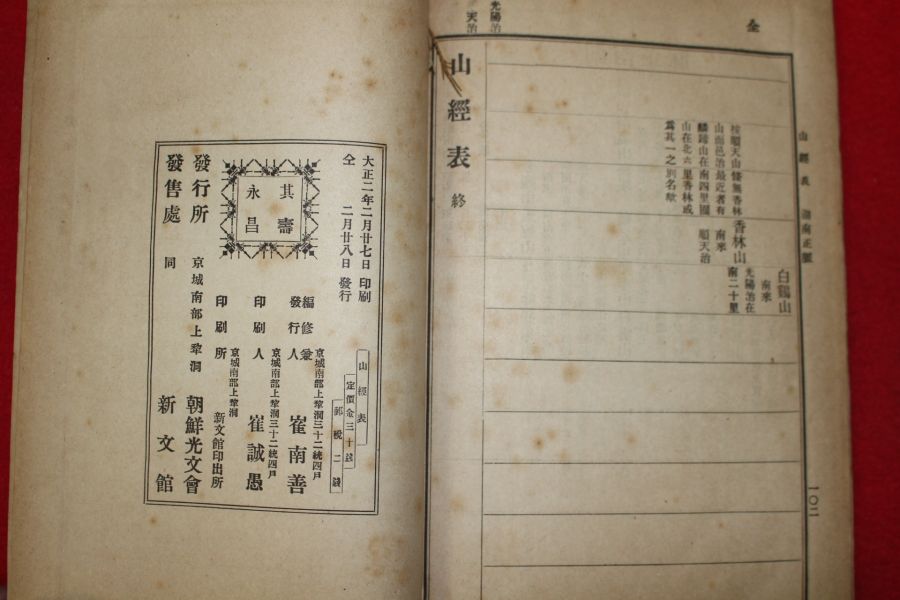 全
光陽治
天治
山經表 湖南正脈
一〇二
白鶴山
南來
光陽治在
南二十里
香林山
南來
順天治
按順天山條無香林
山而邑治最近者有
麟蹄山在南四里圓
山在北六里香林或
爲其一之別名歟
山經表 終
山經表
定價金三十錢
郵稅二錢
大正二年二月廿七日 印刷
二月廿八日 發行
全
其壽
永昌
編修兼
發行人
京城南部上犂洞三十二統四戶
崔南善
印刷人
京城南部上犂洞三十二統四戶
崔誠愚
印刷所
京城南部上犂洞
新文館印出所
發行所 京城南部上犂洞 朝鮮光文會
發售處 同 新文館